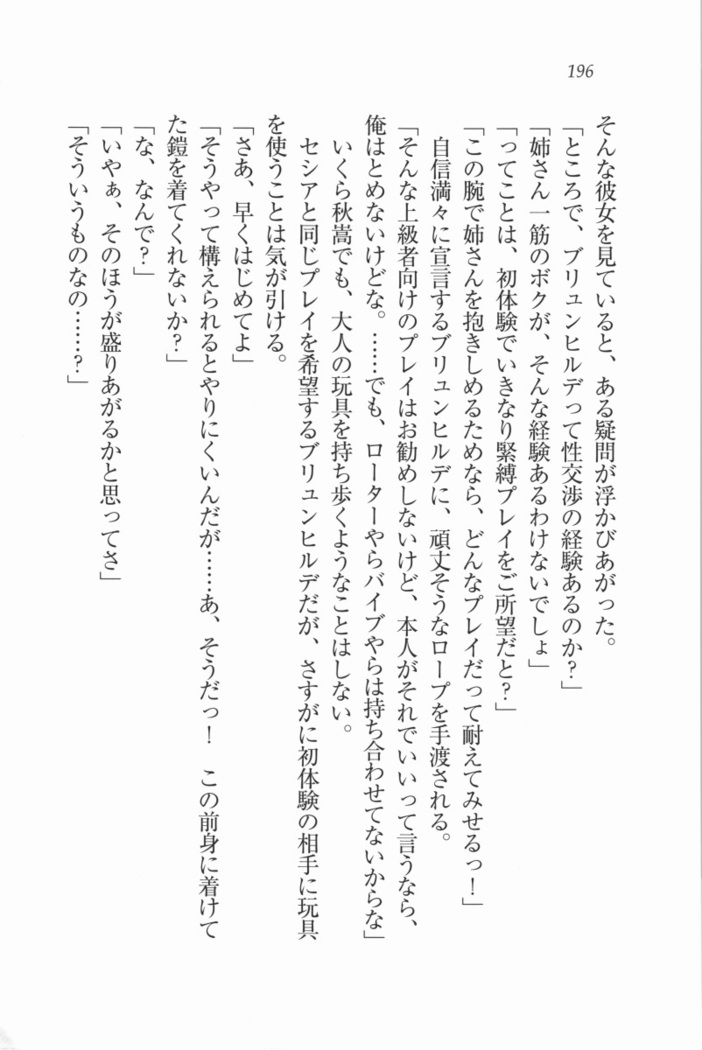 196
そんな彼女を見ていると、ある疑問が浮かびあがった。
「ところで、ブリュンヒルデって性交渉の経験あるのか？」
「姉さん一筋のボクが、そんな経験あるわけないでしょ」
「ってことは、初体験でいきなり緊縛プレイをご所望だと？」
「この腕で姉さんを抱きしめるためなら、どんなプレイだって耐えてみせるっ！」
自信満々に宣言するブリュンヒルデに、頑丈そうなロープを手渡される。
「そんな上級者向けのプレイはお勧めしないけど、本人がそれでいいって言うなら、
俺はとめないけどな。……でも、ローターやらバイブやらは持ち合わせてないからな」
いくら秋嵩でも、大人の玩具を持ち歩くようなことはしない。
セシアと同じプレイを希望するブリュンヒルデだが、さすがに初体験の相手に玩具
を使うことは気が引ける。
「さあ、早くはじめてよ」
「そうやって構えられるとやりにくいんだが……あ、そうだっ！　この前身に着けて
た鎧を着てくれないか？」
「な、なんで？」
「いやぁ、そのほうが盛りあがるかと思ってさ」
「そういうものなの……？」